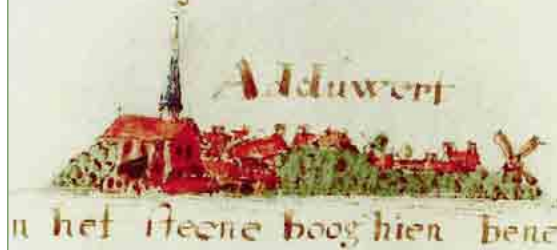 Adduwert
n het steene boog hien bene